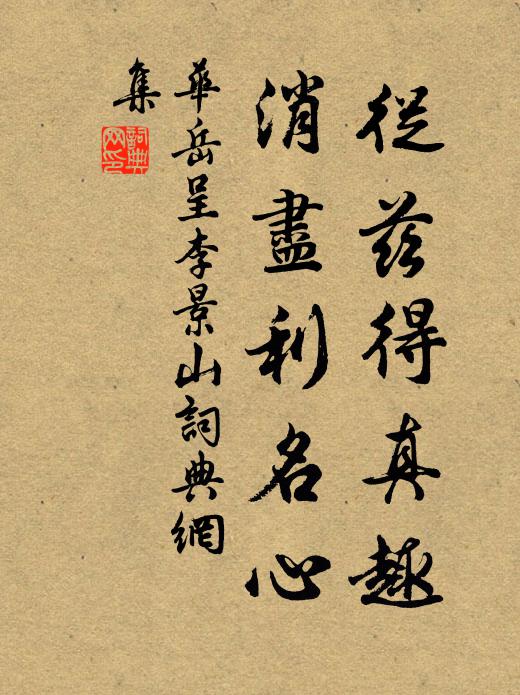 從茲得真趣
消盡利名心
華岳呈李景山詞典網
集
詞典網印